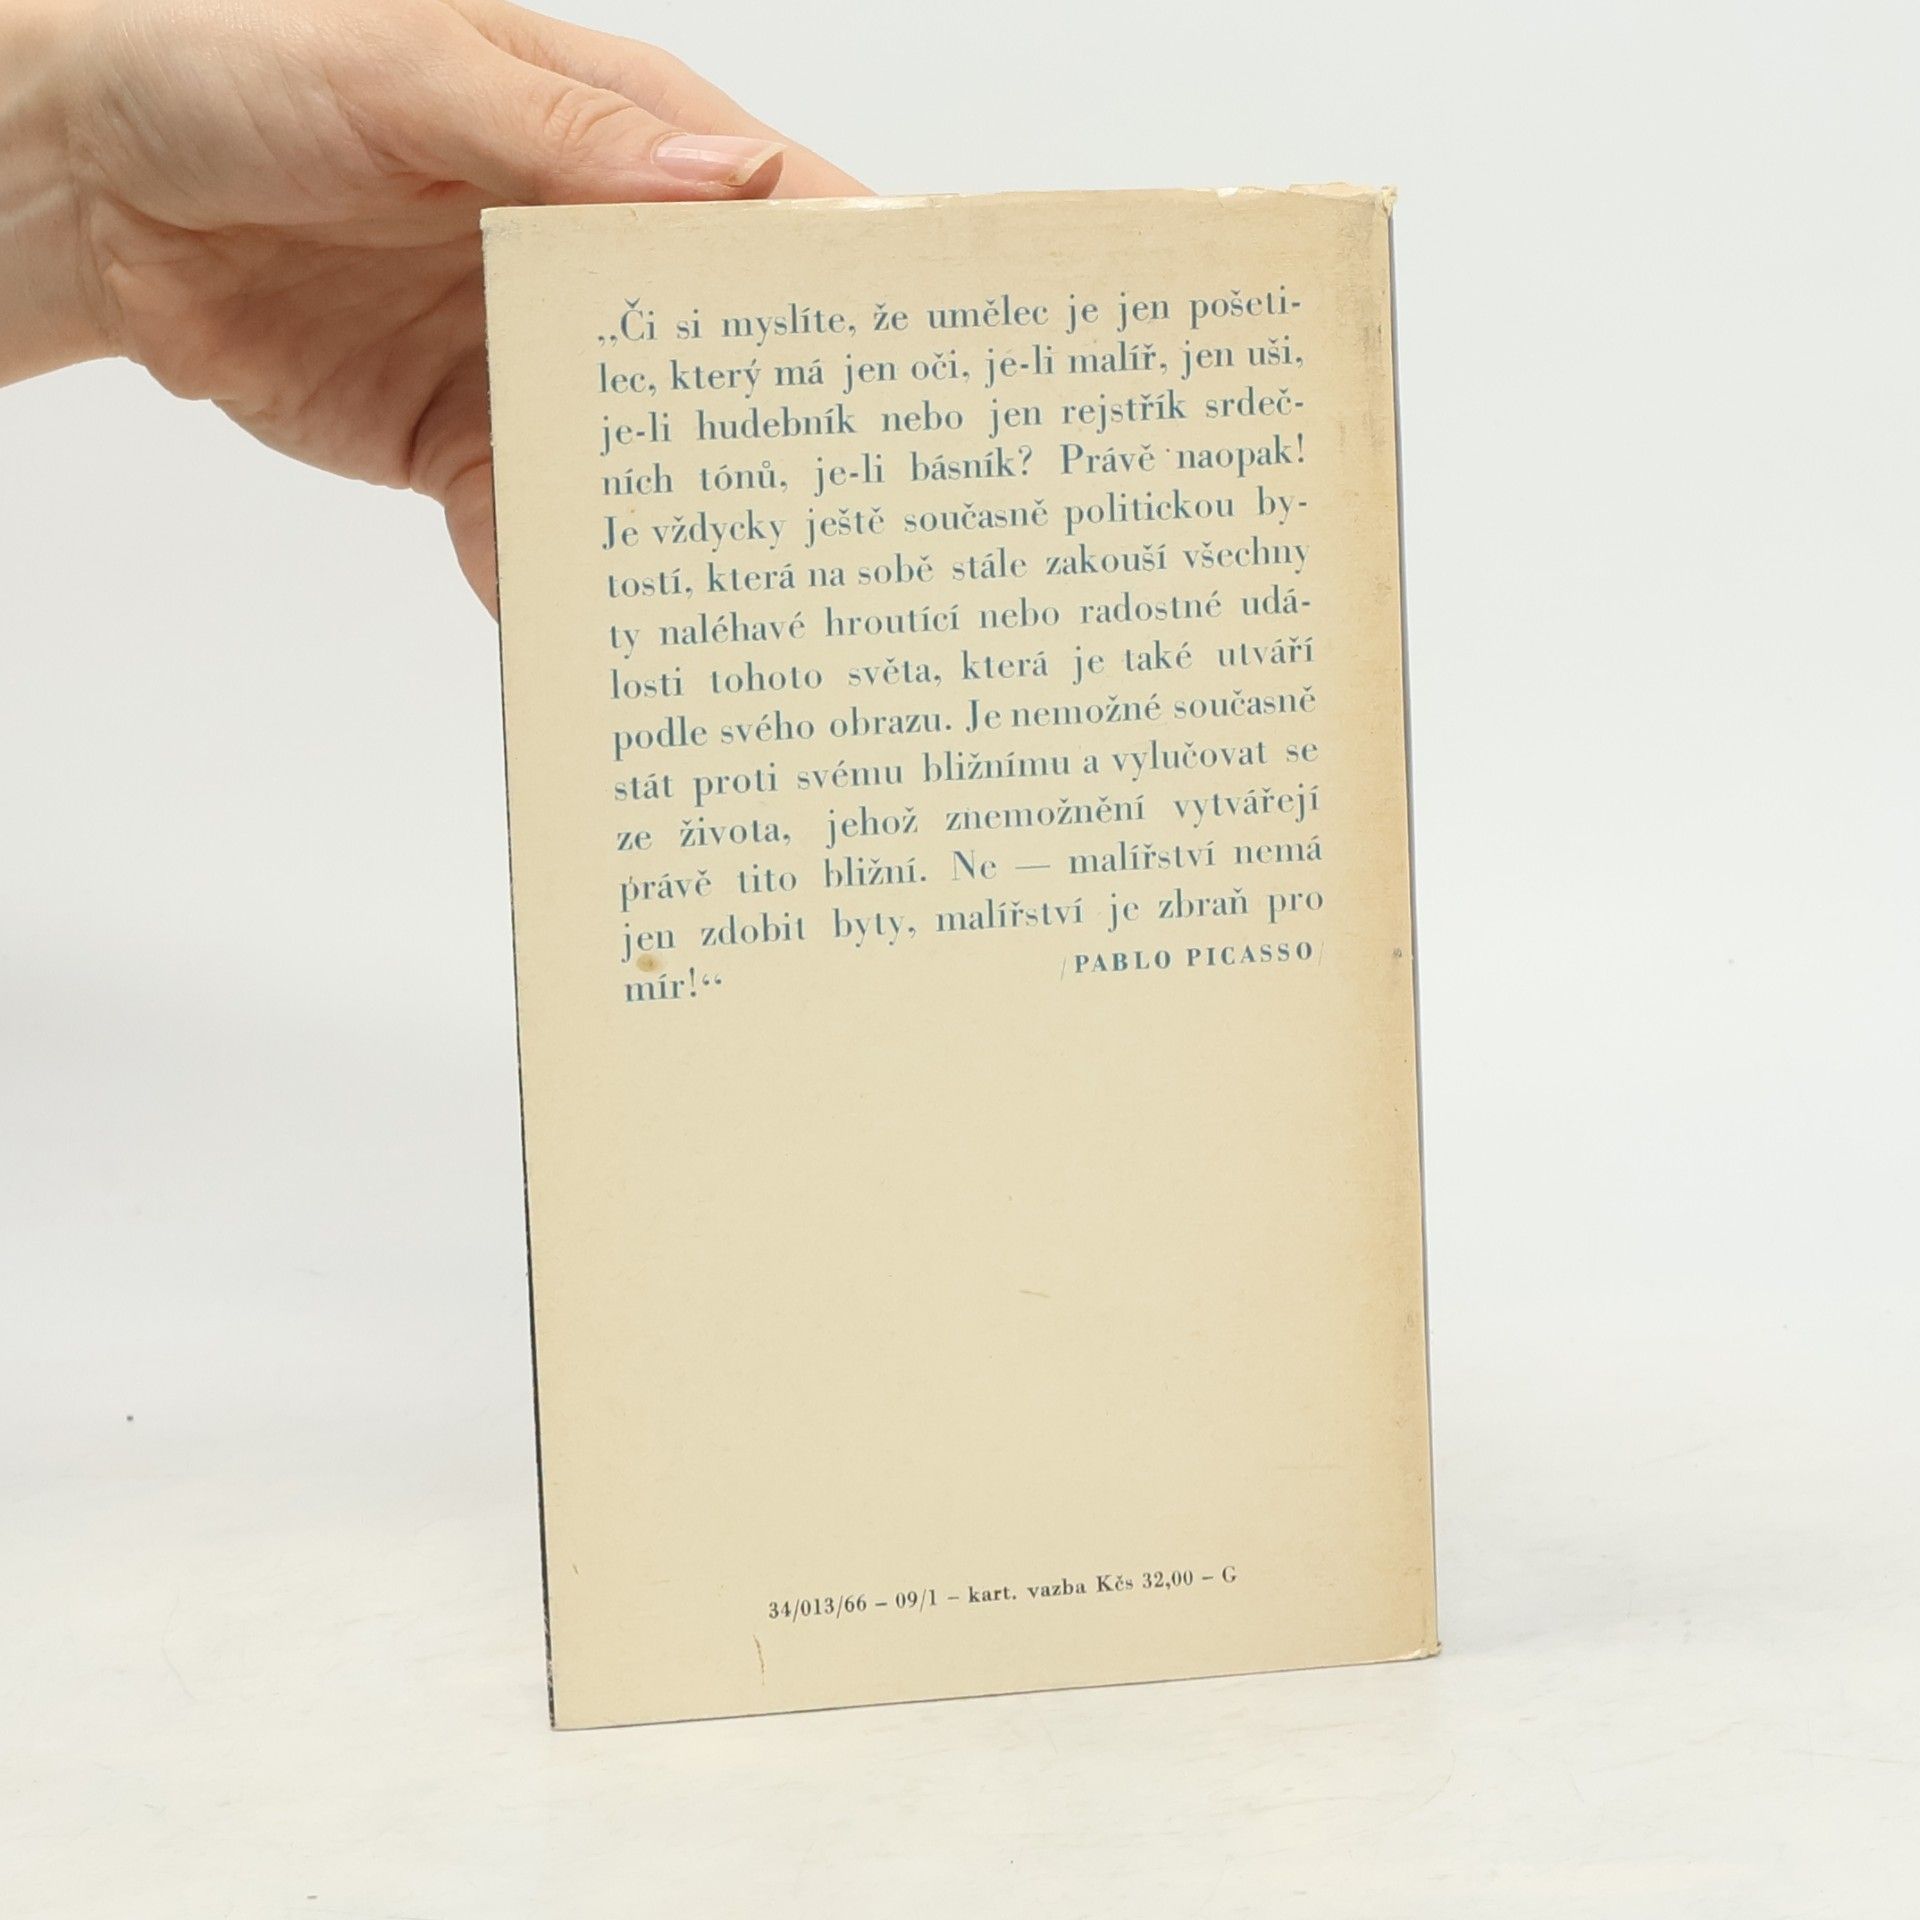 „Či si myslíte, že umělec je jen pošeti-
lec, který má jen oči, je-li malíř, jen uši,
je-li hudebník nebo jen rejstřík srdeč-
ních tónů, je-li básník? Právě naopak!
Je vždycky ještě současně politickou by-
tostí, která na sobě stále zakouší všechny
ty naléhavé hroutící nebo radostné udá-
losti tohoto světa, která je také utváří
podle svého obrazu. Je nemožné současně
stát proti svému bližnímu a vylučovat se
ze života, jehož znemožnění vytvářejí
právě tito bližní. Ne — malířství nemá
jen zdobit byty, malířství je zbraň pro
mír!“ /PABLO PICASSO/
34/013/66 – 09/1 – kart. vazba Kčs 32,00 – G